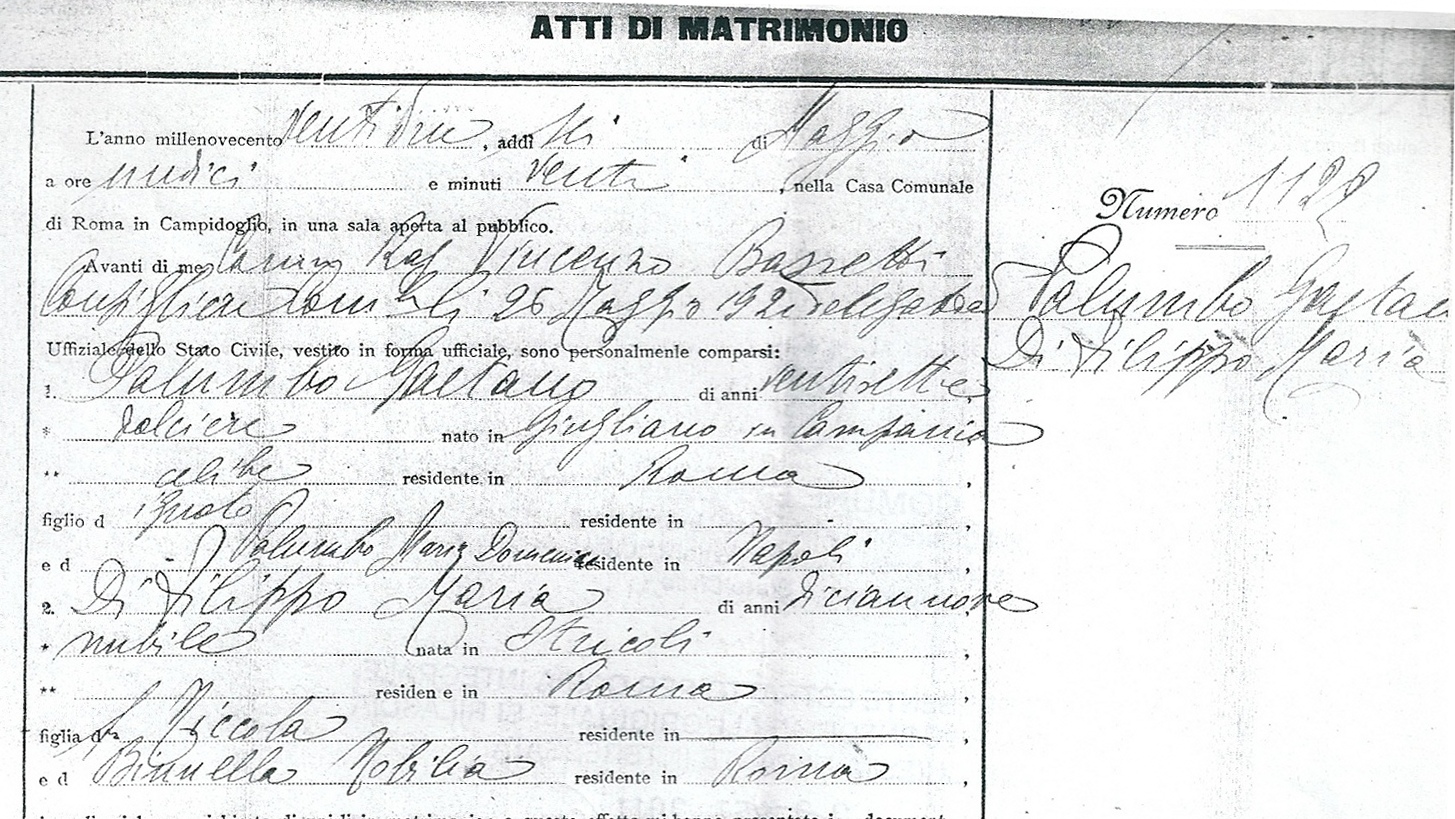 ATTI DI MATRIMONIO
L'anno millenovecento ventidue, addì sei di Maggio
a ore undici e minuti venti, nella Casa Comunale
di Roma in Campidoglio, in una sala aperta al pubblico.
Avanti di me Vincenzo Bassetti
Consigliere 26 Maggio delegato
Uffiziale dello Stato Civile, vestito in forma ufficiale, sono personalmenle comparsi:
1. Palumbo Gaetano di anni ventisette
* nato in Giugliano in Campania
** celibe residente in Roma,
figlio d ignoto residente in -,
e d Palumbo Maria Domenica residente in Napoli,
2. Di Filippo Maria di anni diciannove
* nubile nata in,
** residen e in Roma,
figlia d Niccola residente in,
e d Nobilia residente in Roma,
Numero 1128
Palumbo Gaetan
Di Filippo Maria